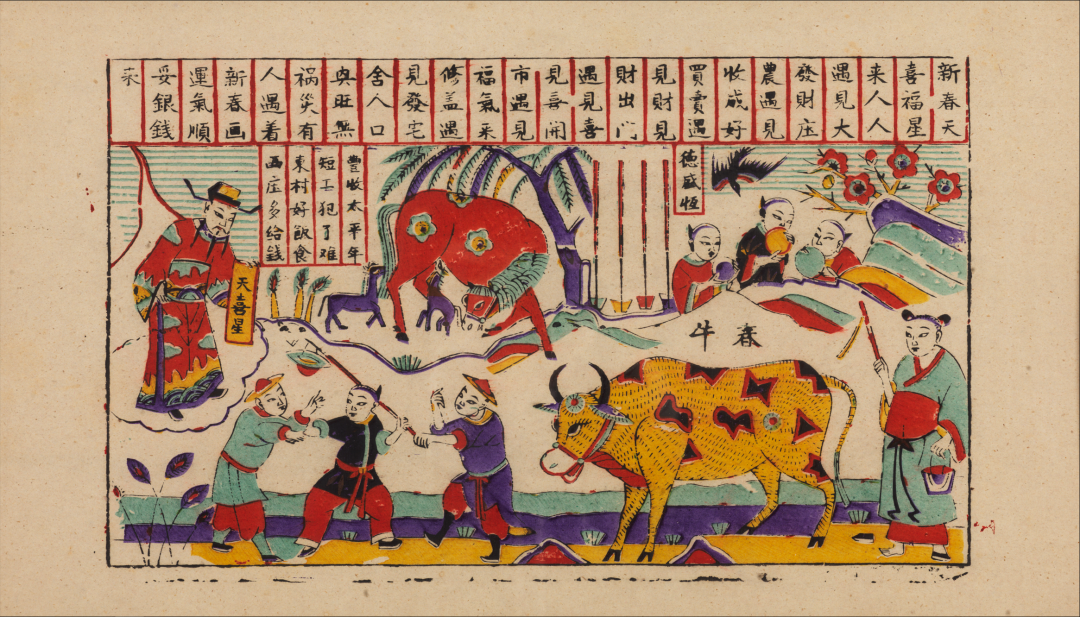 新春天
喜福星
来人人
遇見大
發財庄
農遇見
收成好
買賣遇
見財見
財出门
遇見喜
見喜開
市遇見
福氣来
修盖遇
見發宅
舍人口
與旺無
祸災有
人遇着
新春画
運氣順
妥銀錢
来
德盛恒
豐收太平年
短工犯了难
東村好飯食
西庄多给錢
天喜星
春牛